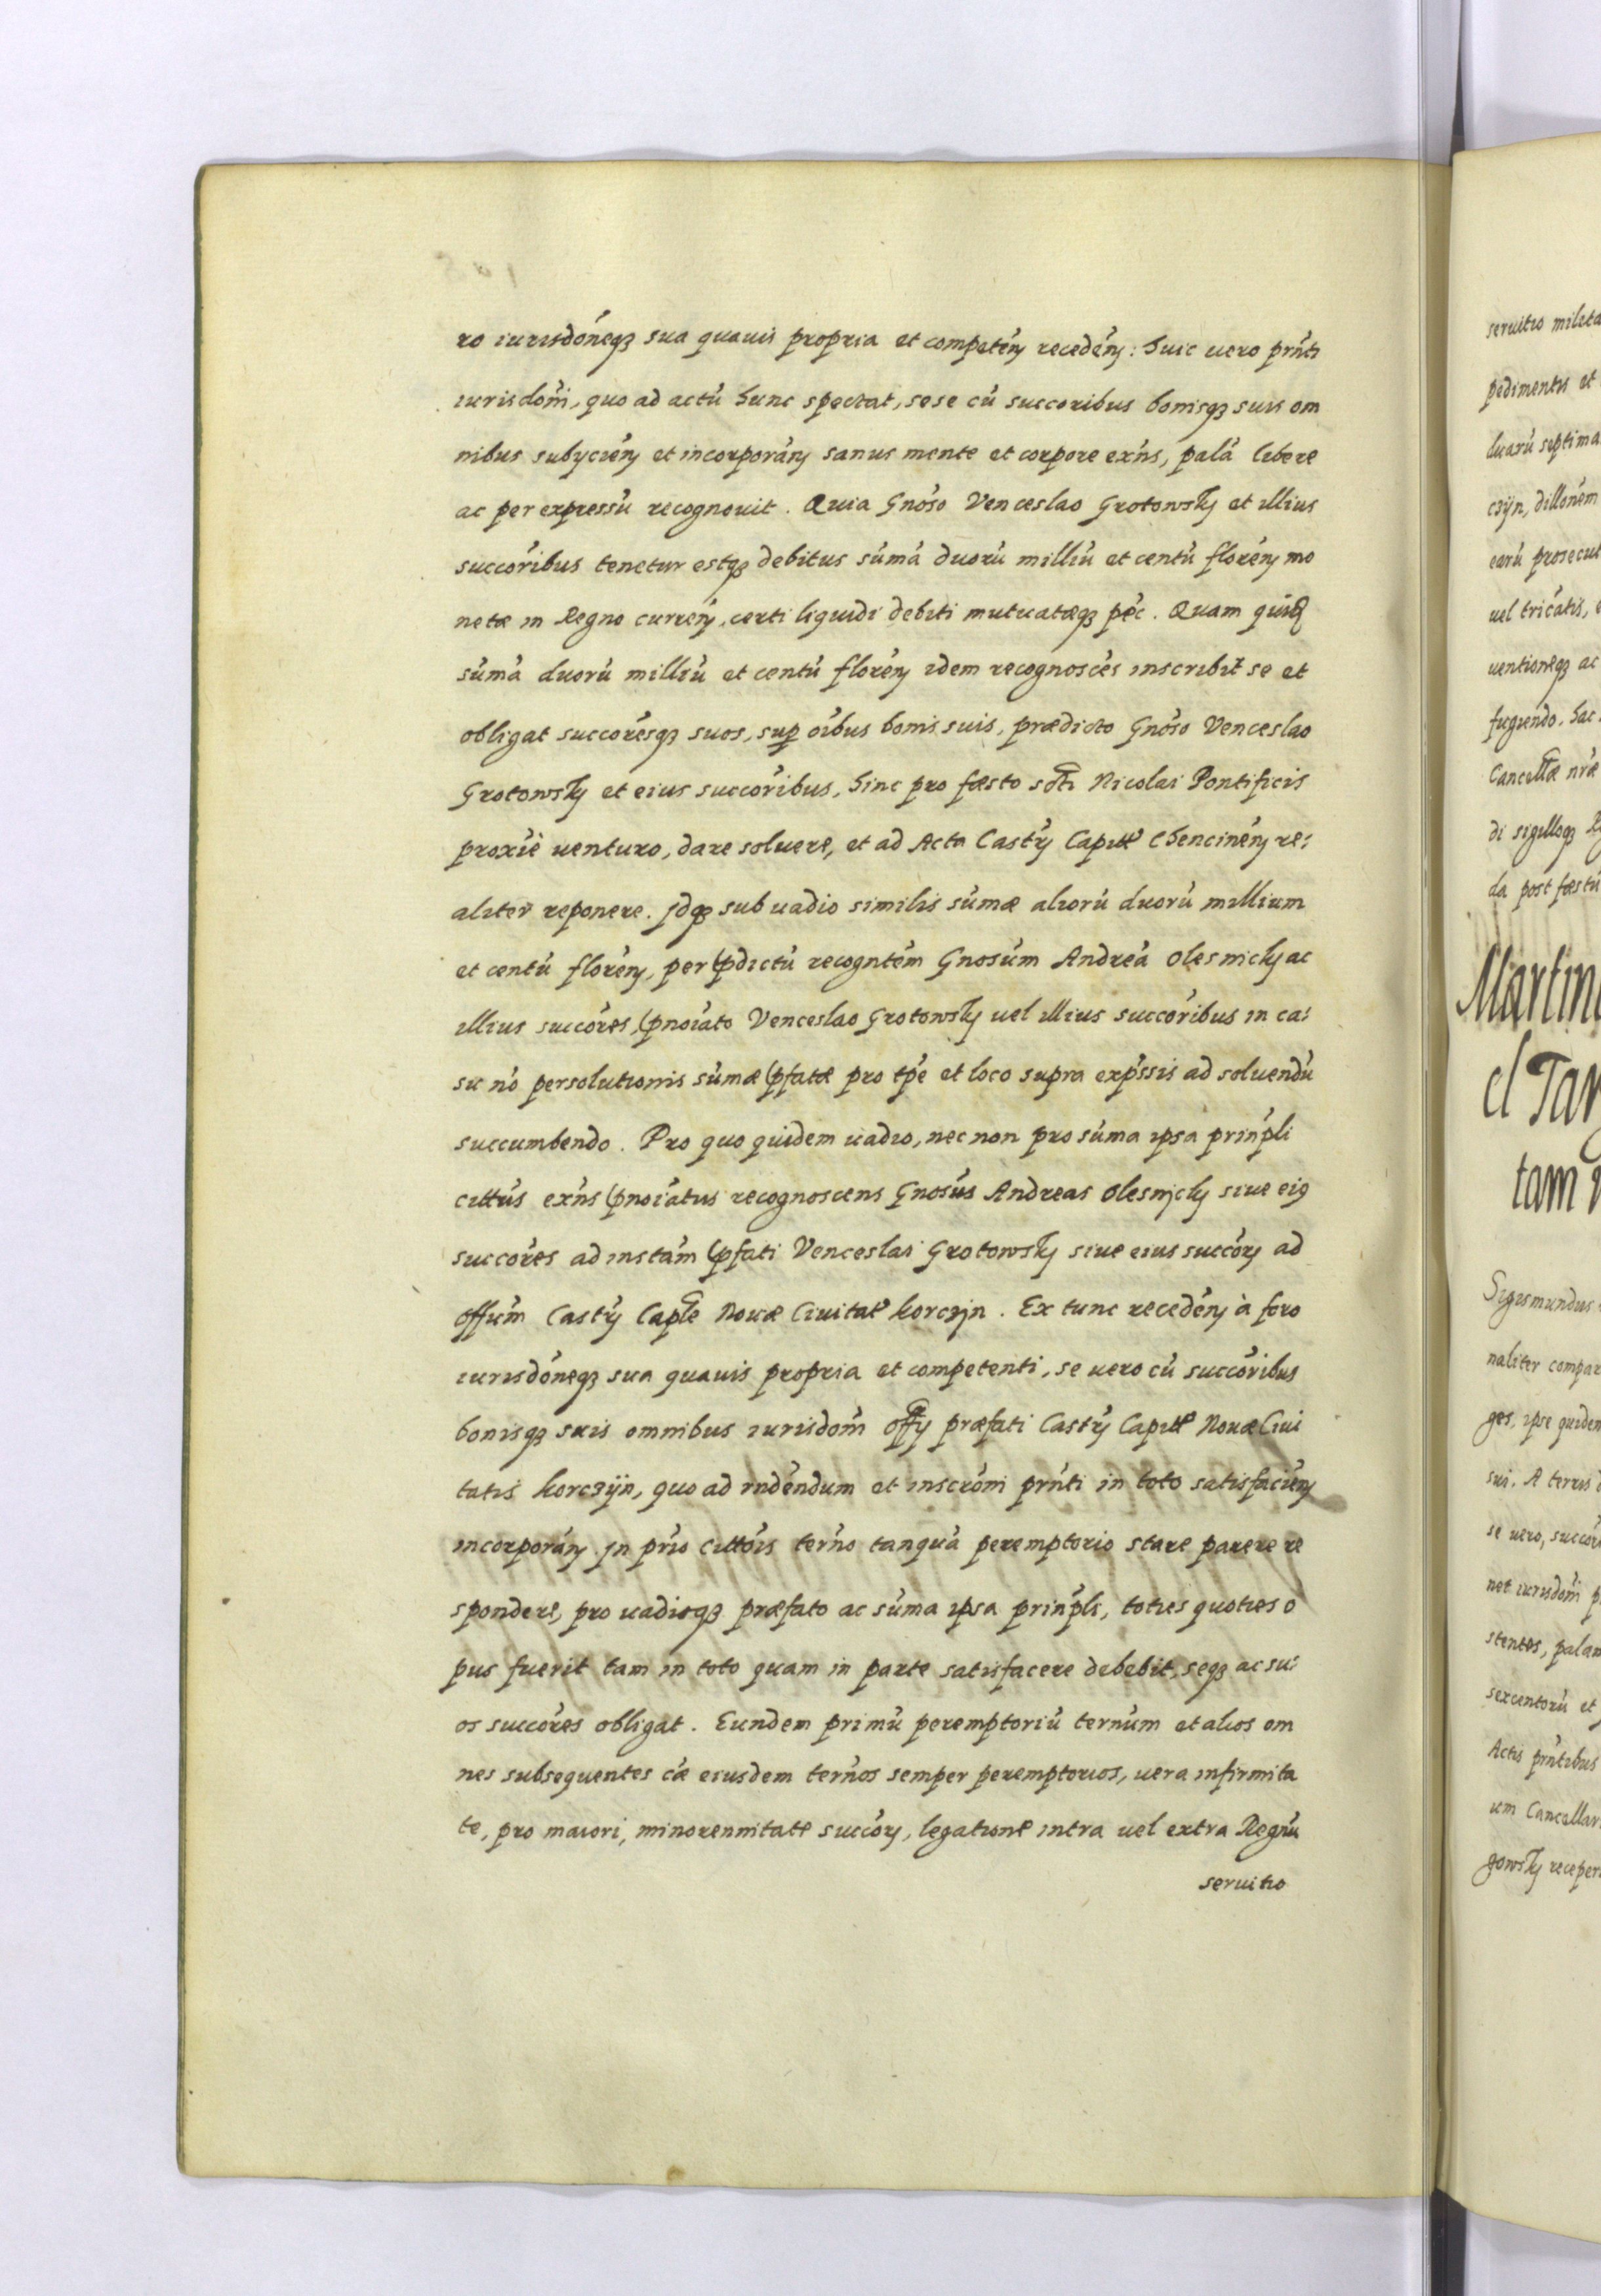 ro iurisdónéqꝫ sua quauis propria et competéɳ recedéɳ: huic uero prńti
iurisdońi, quo ad actú hunc spectat, sese cú succoribus bonisqꝫ suis om
nibus subycieɳ et incorporáɳ sanus mente et corpore exńs, palá libere
ac per expressú recognouit. Quia Gnóso Venceslao Grotowsky et illius
succóribus tenetur estqꝫ debitus súmá duorú milliú et centú floréɳ mo
netæ in Regno curreɳ, certi liquidi debiti mutuatæqꝫ péc. Quam quid
súmá duorú milliú et centú floréɳ idem recognoscés inscribit se et
obligat succorésqꝫ suos, sup óibus bonis suis, prædicto Gnóso Venceslao
Grotowsky et eius succóribus, hinc pro fæsto scti Nicolai Pontificis
proxié uenturo, dare soluere, et ad Acta Castrɳ Capitt Chencinéɳ re:
aliter reponere. Jdqꝫ sub uadio similis súmæ aliorú duorú millium
et centú floréɳ, per pdictú recogntém Gnosúm Andreá Olesnicky ac
illius succóres, pnoiáto Venceslao Grotowsky uel illius succóribus in ca:
su nó persolutionis súmæ pfatæ pro tpé et loco supra expŕssis ad soluendú
succumbendo. Pro quo quidem uadio, nec non pro súma ipsa prinpĺi
cittús exńs pnoiátus recognoscens Gnosús Andreas Olesnicky siue eiꝯ
succóres ad instám pfati Venceslai Grotowsky siue eius succórɳ ad
offúm Castrɳ Caple Nouæ Ciuitat Korczyn. Ex tunc recedéɳ à foro
iurisdónéqꝫ sua quauis propria et competenti, se uero cú succóribus
bonisqꝫ suis omnibus iurisdoḿ offy præfati Castrɳ Capitt Nouæ Ciui
tatis Korczyn, quo ad rndéndum et inscróni prńti in toto satisfacieɳ
incorporáɳ. In prió cittóis terńo tanquá peremptorio stare parere re
spondere, pro uadioqꝫ præfato ac súma ipsa prinpĺi, toties quoties o
pus fuerit tam in toto quam in parte satisfacere debebit, seqꝫ ac su:
os succóres obligat. Eundem primú peremptoriú ternúm et alios om
nes subsequentes cáæ eiusdem terńos semper peremptorios, uera infirmita
te, pro maiori, minorennitate succórɳ, legatione intra uel extra Regnú
seruitio
seruitio milita
pedimentis et
duarú septima
czyn, dillonem
earú prosecut
uel tricatis,
uentioneqꝫ ac
fugiendo. hac
Cancellæ nræ
di sigilloqꝫ
da post fæstú
Martin
el Tar
tam
Sigismundus
naliter compar
ges, ipse quidem
sui. A terris
se uero, succor
net iurisdoni p
stentes, palam
sexcentorú et
Actis prntibus
um Cancellar
gowsky receper